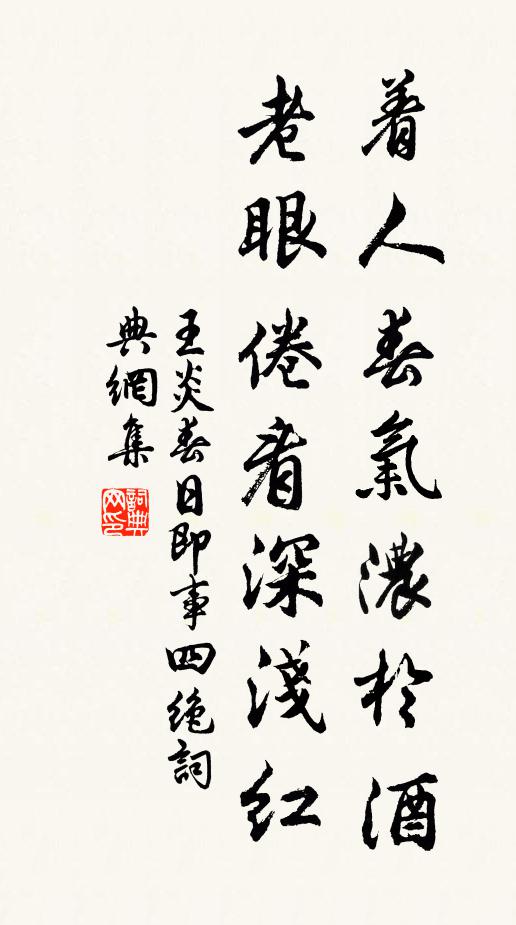 着人春氣濃於酒
老眼倦看深淺紅
王炎春日即事四絶詞
典網集
詞典网印